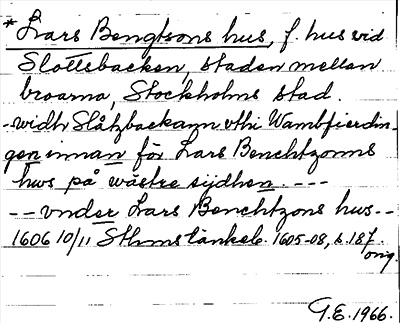 * Lars Bengtsons hus, f. hus vid
Slottsbacken, staden mellan
broarna, Stockholms stad.
--widh Slåtzbackann vthi Wambfierdin-
gen innan för Lars Benchtzonns
hws på wästre sijdhen. ----
-- vnder Lars Benchtzons hus--
1606 10/11 Sthms tänkeb. 1605-08, s. 187.
orig.
G.E. 1966.